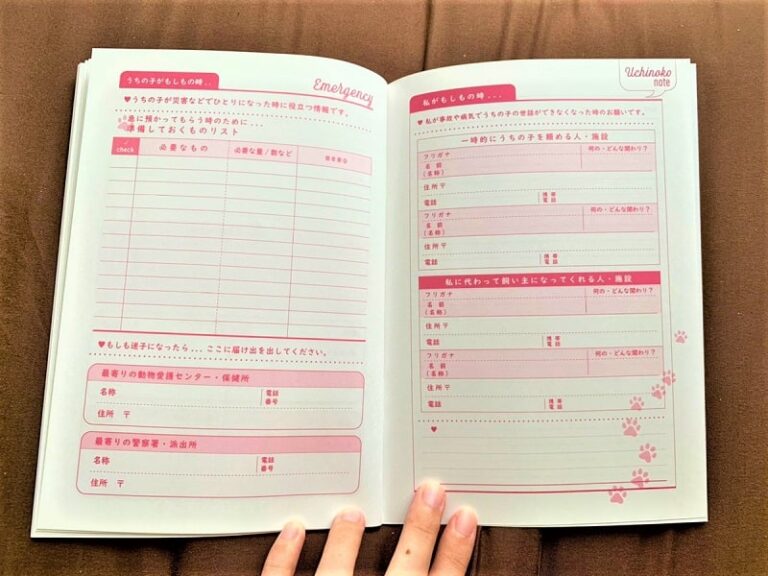 うちの子がもしもの時...
Emergency
♥うちの子が災害などでひとりになった時に役立つ情報です。
急に預かってもらう時のために...
準備しておくものリスト
✓ check 必要なもの 必要な量/数など
♥もしも迷子になったら...ここに届け出を出してください。
最寄りの動物愛護センター・保健所
名称 電話番号
住所 〒
最寄りの警察署・派出所
名称 電話番号
住所 〒
Uchinoko note
私がもしもの時...
♥私が事故や病気でうちの子の世話ができなくなった時のお願いです。
一時的にうちの子を頼める人・施設
フリガナ 何の・どんな関わり?
名前
(名称)
住所 〒
電話 携帯電話
フリガナ 何の・どんな関わり?
名前
(名称)
住所 〒
電話 携帯電話
私に代わって飼い主になってくれる人・施設
フリガナ 何の・どんな関わり?
名前
(名称)
住所 〒
電話 携帯電話
フリガナ 何の・どんな関わり?
名前
(名称)
住所 〒
電話 携帯電話
♥